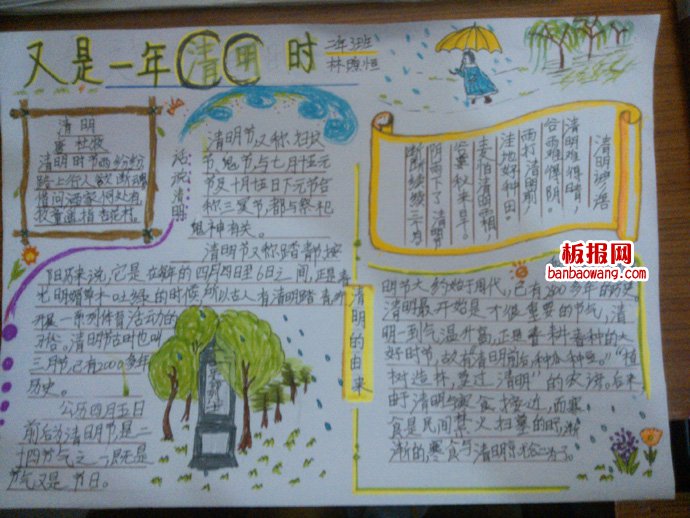 又是一年清明时
二年3班
林燎恒
清明
杜牧
清明时节雨纷纷
路上行人欲断魂
借问酒家何处有
牧童遥指杏花村
话说清明
清明节又称扫坟
节、鬼节与七月十五元
节及十月十五日下元节合
称三冥节,都与祭祀
鬼神有关。
清明节又称踏青节,按
阳历来说,它是在每年的四月四日至6日之间,正是春
光明媚草木吐绿的时候,所以古人有清明踏青,并
开展一系列体育活动的
习俗。清明节古时也叫
三月节,已有2000多年
历史。
公历四月五日
前后为清明节是二
十四节气之一,既是
节气又是节日。
清明谚语
清明难得晴,
谷雨难得阴。
雨打清明前,
洼地好种田。
麦怕清明霜,
谷要秋来旱。
阴雨下了清明节
断断续续三个月
板报网
banbaowang.com
清明的由来
明节大约始于周代,已有2500多年的历史。
清明最开始是一个很重要的节气,清
明一到气温升高,正是春耕春种的大
好时节,故有“清明前后,种瓜种豆。”“植
树造林,莫过清明”的农谚。后来,
由于清明与寒食接近,而寒
食是民间禁火扫墓的日子,渐
渐的,寒食与清明就合二为一了。